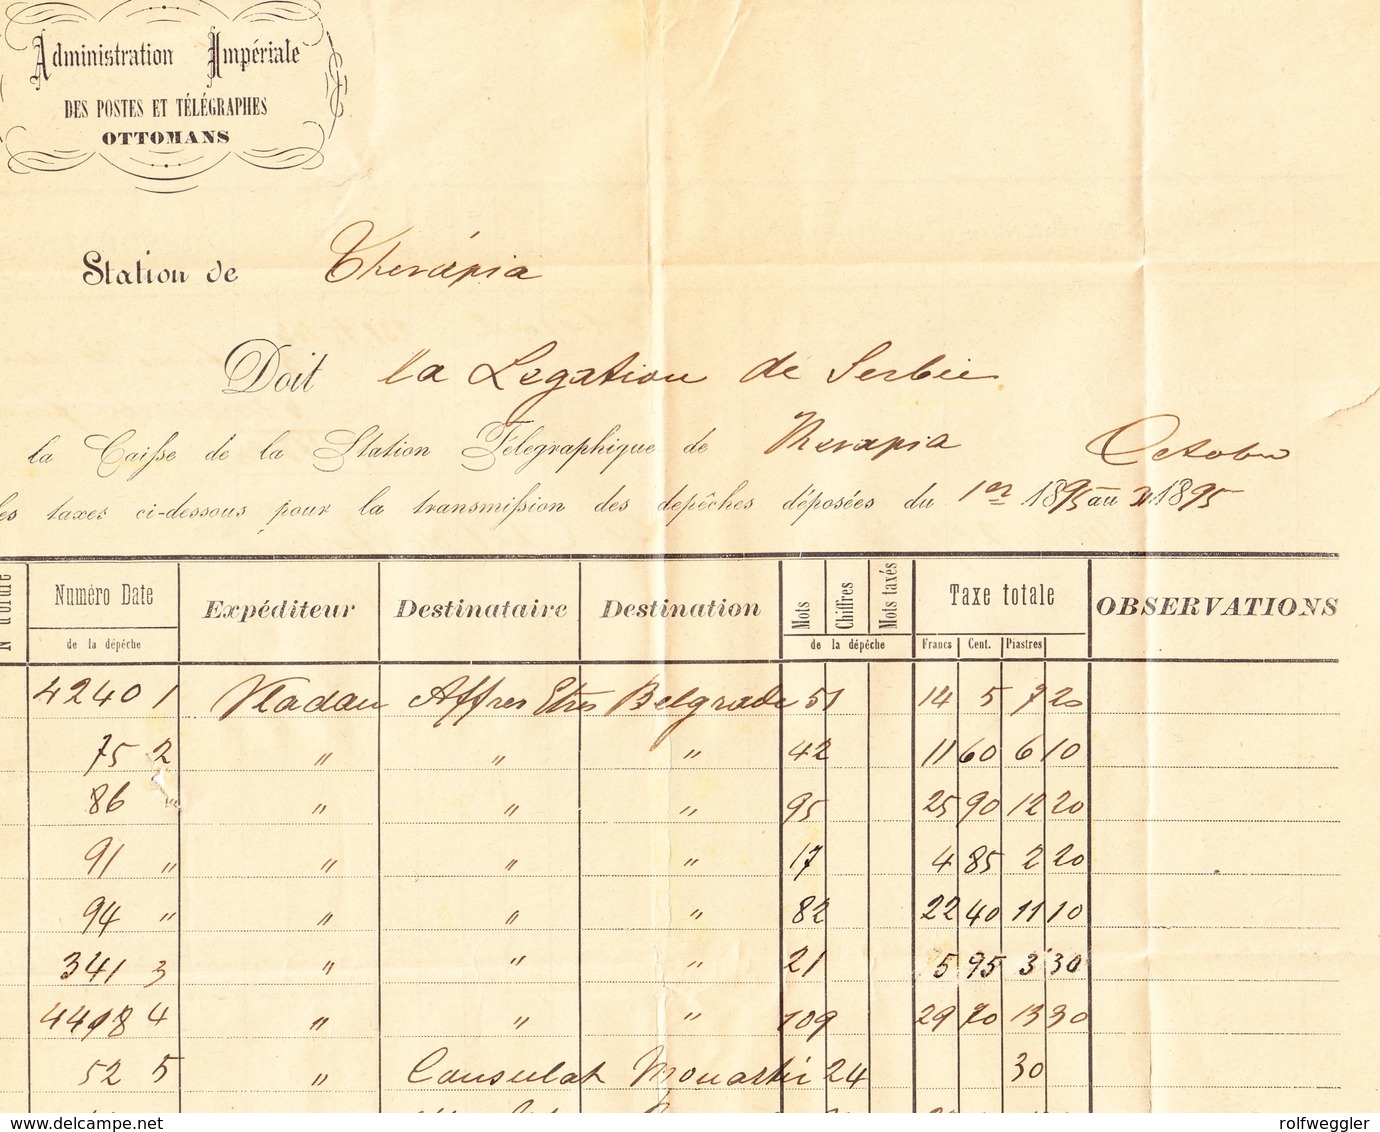 Administration Impériale
DES POSTES ET TÉLÉGRAPHES
OTTOMANS
Station de Thérápia
Doit la Légation de Serbie
la Caisse de la Station Télégraphique de Therapia Octobre
es taxes ci-dessous pour la transmission des depêches déposées du 1er 1895 au 31 1895
N d'ordre Numéro Date Expéditeur Destinataire Destination Mots Chiffres Mots taxés Taxe totale OBSERVATIONS
de la dépêche de la dépêche Francs Cent. Piastres
4240 1 Vladan Affres Etres Belgrade 51 14 5 7 20
75 2 " " " 42 11 60 6 10
86 " " " " 95 25 90 12 20
91 " " " " 17 4 85 2 20
94 " " " " 82 22 40 11 10
341 3 " " " 21 5 95 3 30
4418 4 " " " 109 29 70 13 30
52 5 " Consulat Monastir 24 30
www.delcampe.net
rolfweggler